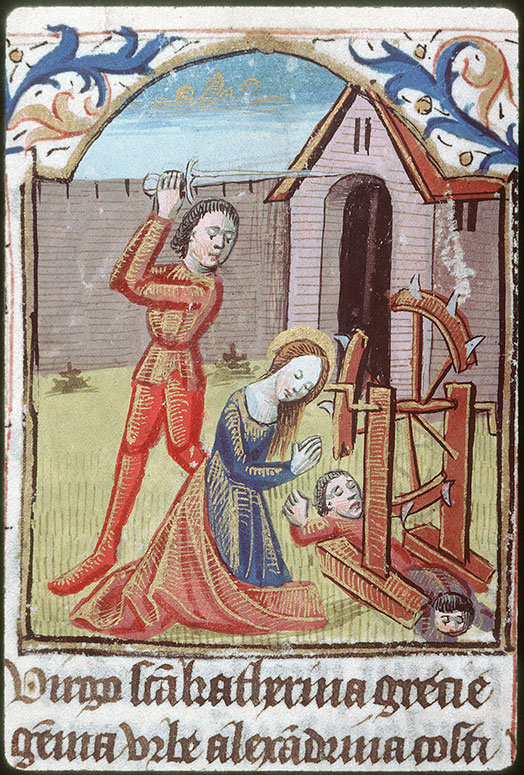 Virgo scā katherina grecie
gēma vrbe alexādrina costi